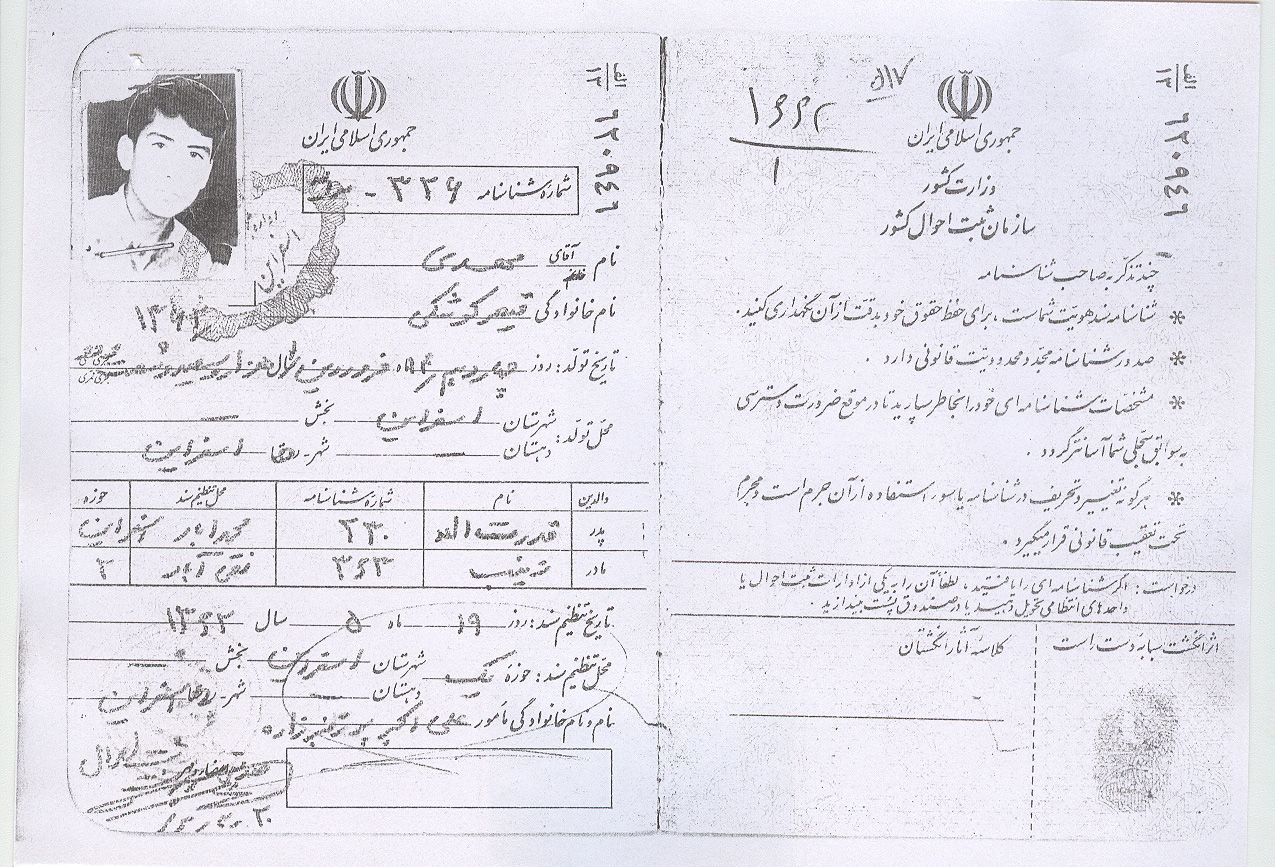 الف
۱۳
۶۲۰۹۴۶
جمهوری اسلامی ایران
وزارت کشور
سازمان ثبت احوال کشور
چند تذکر به صاحب شناسنامه
* شناسنامه سند هویت شماست ، برای حفظ حقوق خود بدقت از آن نگهداری کنید .
* صدور شناسنامه مجدد محدودیت قانونی دارد .
* مشخصات شناسنامه ای خود را بخاطر بسپارید تا در موقع ضرورت دسترسی
به سوابق سجلی شما آسانتر گردد .
* هرگونه تغییر و تحریف در شناسنامه یا سوء استفاده از آن جرم است و مجرم
تحت تعقیب قانونی قرار میگیرد .
درخواست : اگر شناسنامه ای را یافتید ، لطفاً آن را به یکی از ادارات ثبت احوال یا
واحدهای انتظامی تحویل دهید یا در صندوق پست بیندازید .
اثر انگشت سبابه دست راست
کلاسه آثار انگشتان
الف
۱۳
۶۲۰۹۴۶
جمهوری اسلامی ایران
شماره شناسنامه ۳۲۶ -
نام آقای مهدی
نام خانوادگی قیصر کوشکی
۱۳۶۲
تاریخ تولد : روز چهاردهم ماه فروردین سال هزار و سیصد و شصت
محل تولد : شهرستان اسفراین بخش —
دهستان — شهر اسفراین
والدین نام شماره شناسنامه محل تنظیم سند حوزه
پدر قدرت اله ۲۳۰ اسفراین
مادر زینب ۳۶۳ نقی آباد ۲
تاریخ تنظیم سند : روز ۱۹ ماه ۵ سال ۱۳۶۲
محل تنظیم سند : حوزه یک شهرستان اسفراین بخش
دهستان — شهر اسفراین
نام و نام خانوادگی مأمور علی اکبر